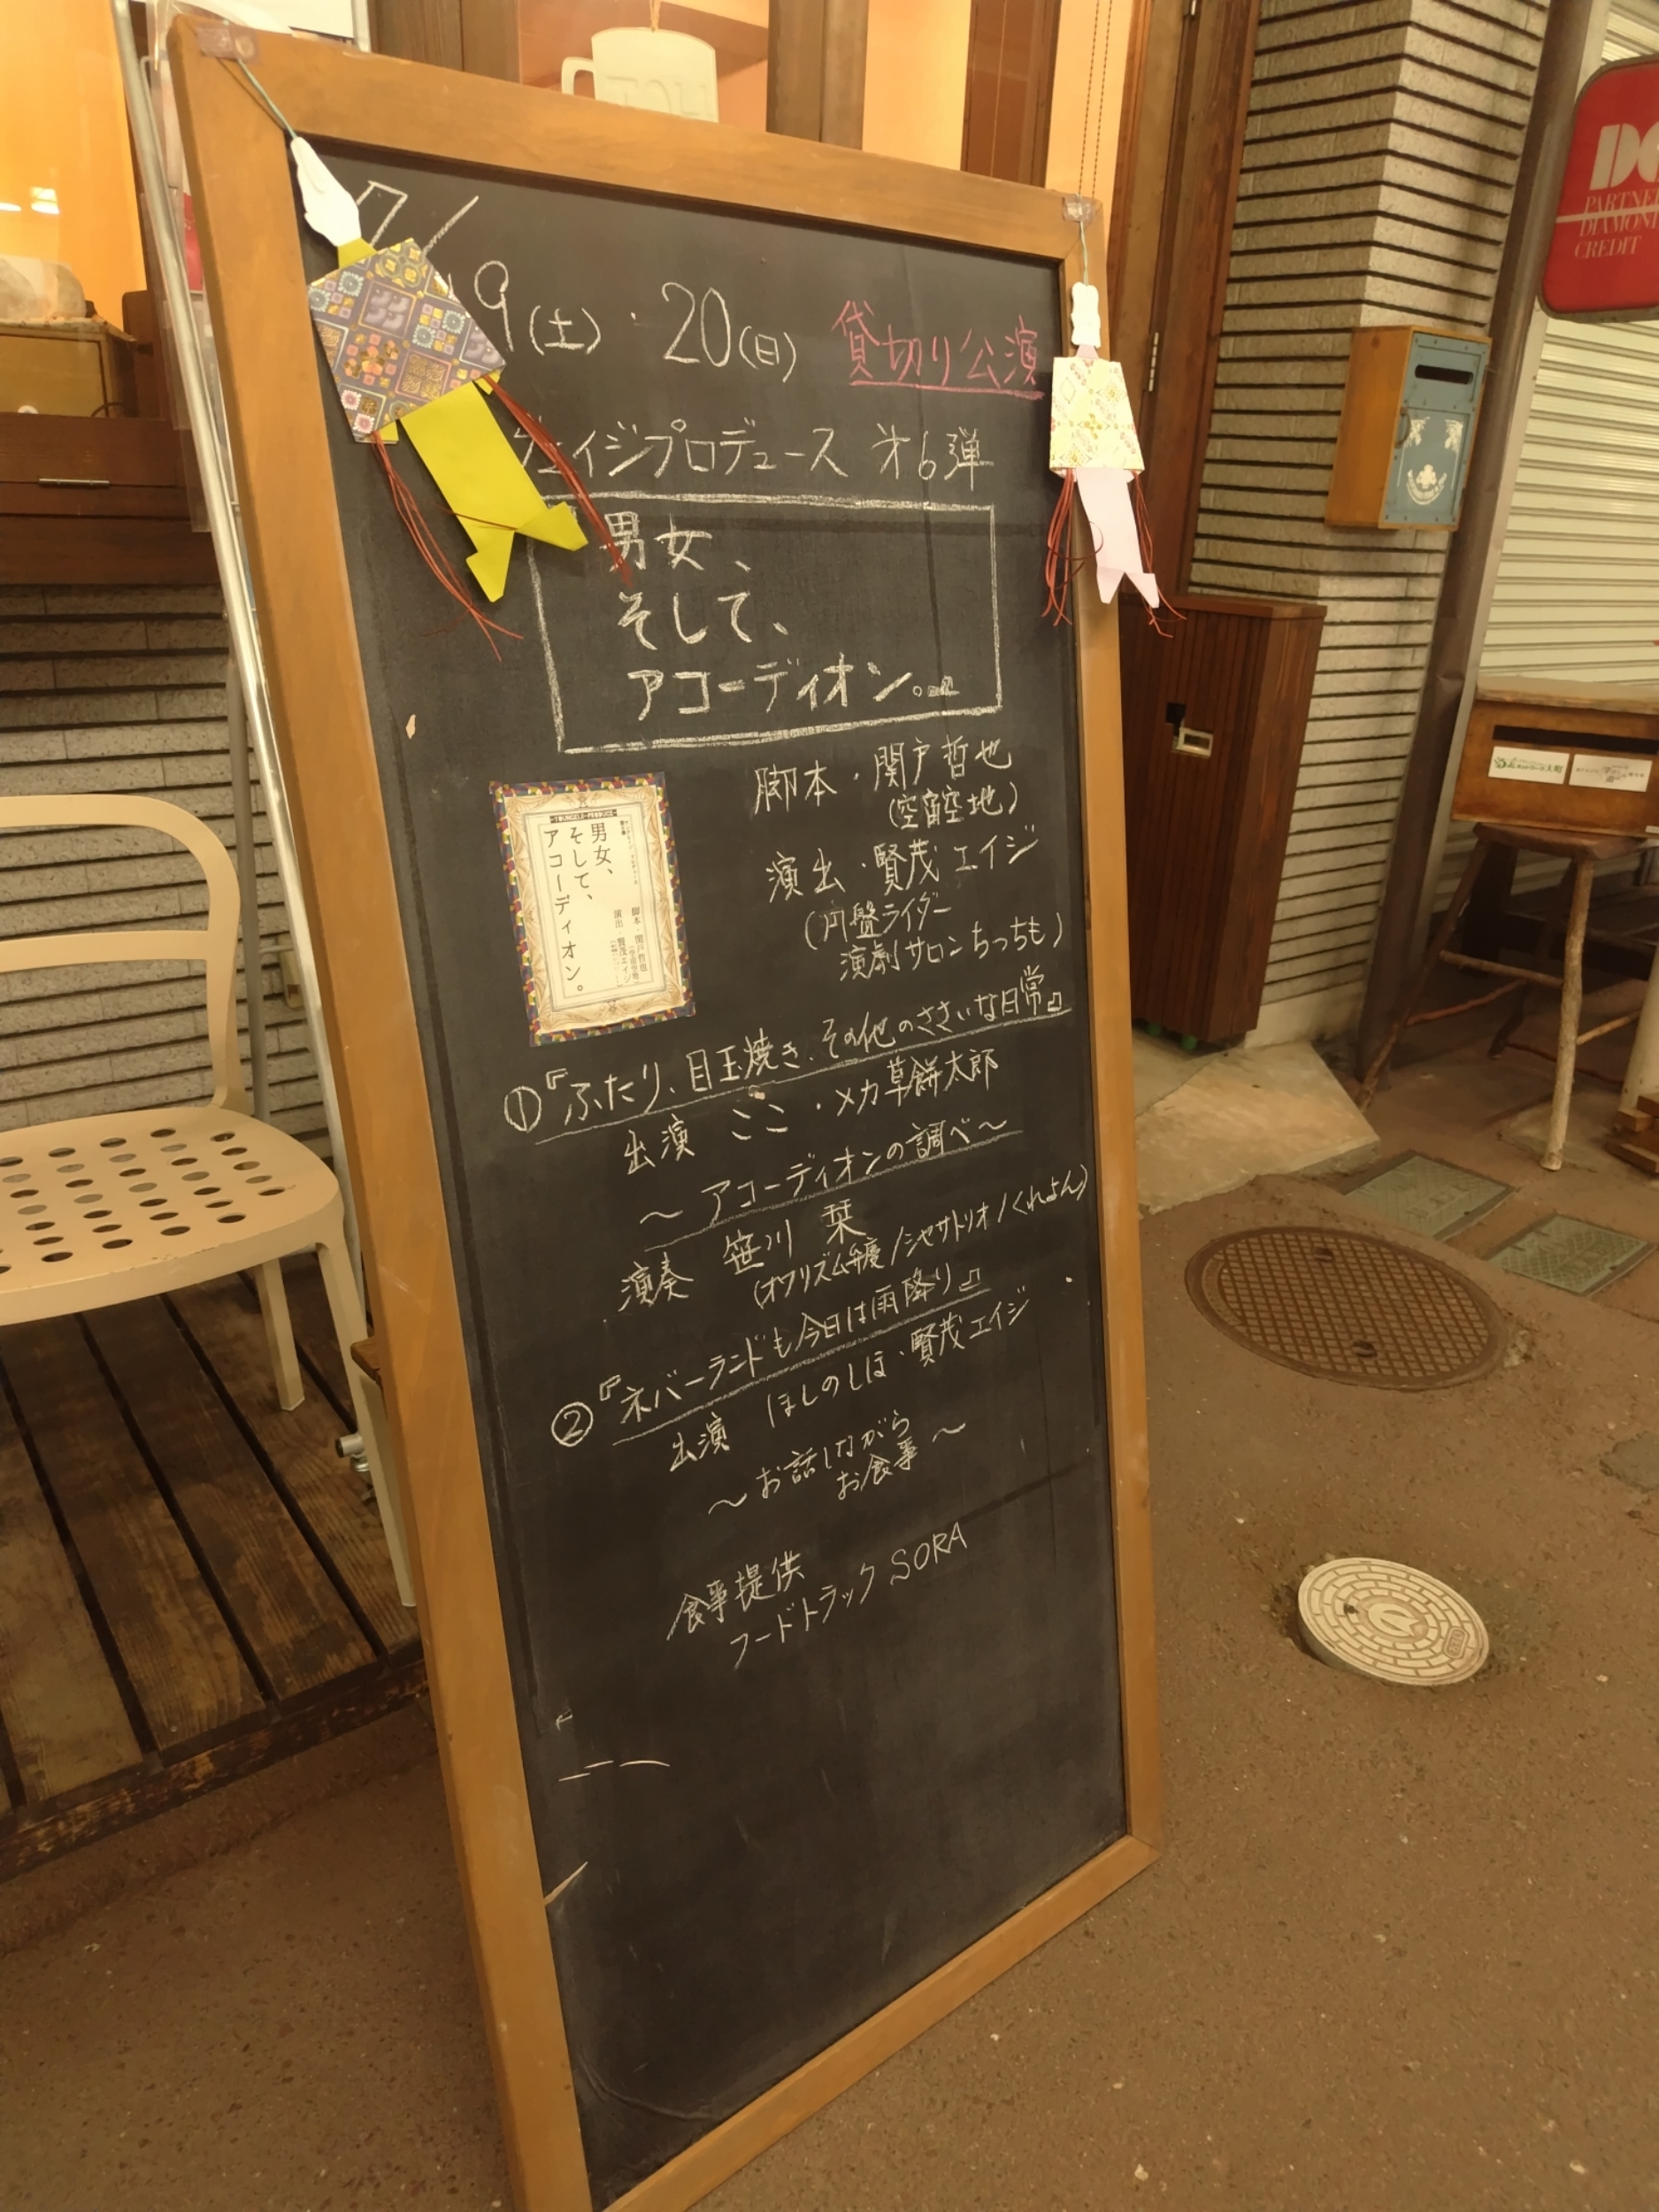 7/19(土)・20(日) 貸切り公演
ェイジプロデュース 才6弾
男女、
そして、
アコーディオン。
脚本・関戸哲也
(空宙空地)
演出・賢茂エイジ
(円盤ライダー
演劇サロンちっちも)
男女、
そして、
アコーディオン。
脚本・関戸哲也
演出・賢茂エイジ
①『ふたり、目玉焼き、その他のささいな日常』
出演 ここ・メカ草餅太郎
〜アコーディオンの調べ〜
演奏 笹川 栞
(オフリズム弁慶/シャサトリオ/くれよん)
②『ネバーランドも今日は雨降り』
出演 ほしのしほ・賢茂エイジ
〜お話しながら
お食事〜
食事提供
フードトラックSORA
DC
PARTNE
DIAMON
CREDIT